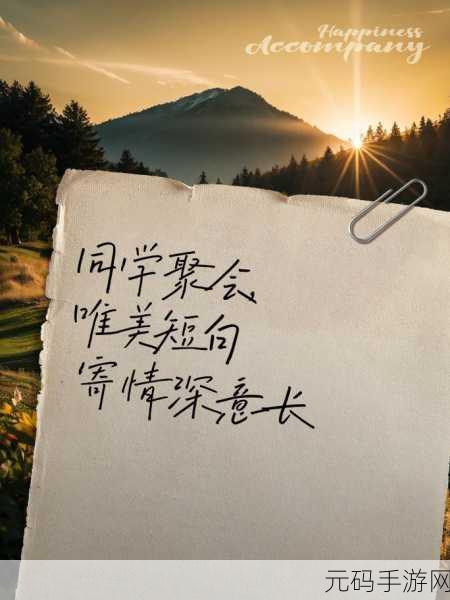 Happiness
Accompany
同学聚会
唯美短句
寄情深意长
元码手游网